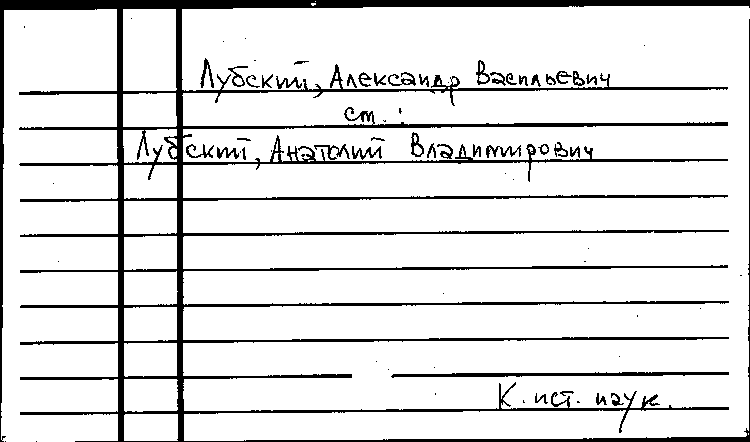 Лубский, Александр Васильевич
см.:
Лубский, Анатолий Владимирович
К. ист. наук.